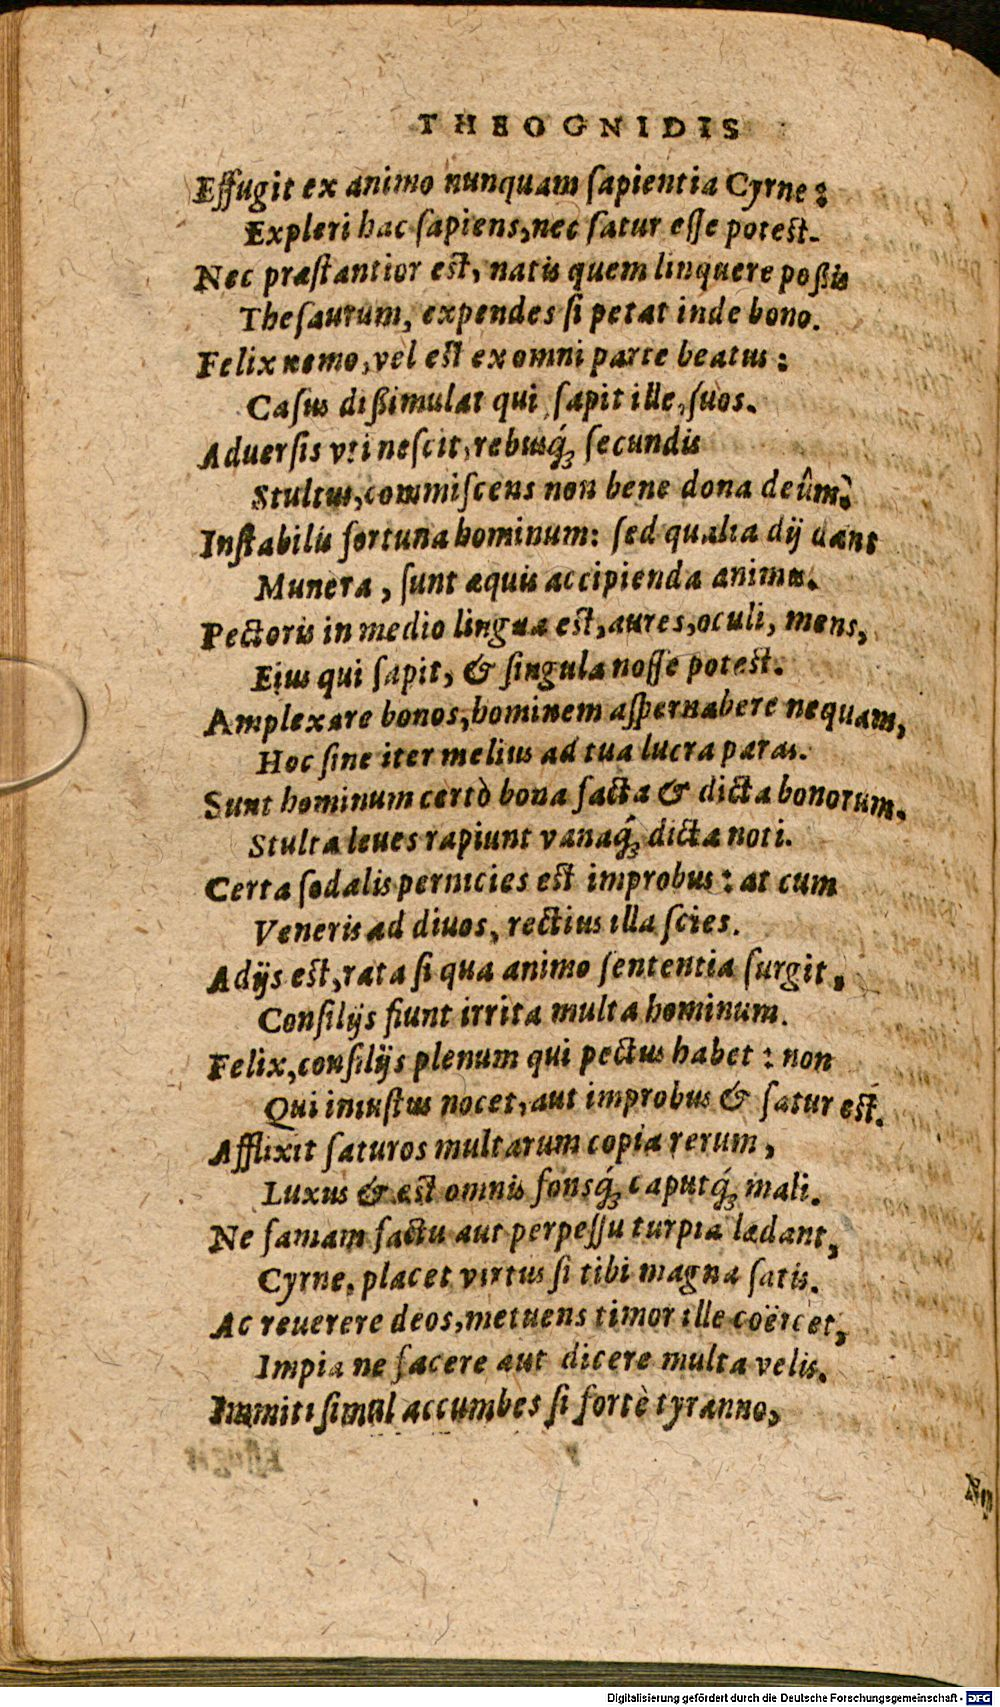 THEOGNIDIS
Effugit ex animo nunquam ſapientia Cyrne:
Expleri hac ſapiens, nec ſatur eſſe poteſt.
Nec præſtantior eſt, natis quem linquere poßis
Theſaurum, expendes ſi petat inde bono.
Felix nemo, vel eſt ex omni parte beatus:
Caſus dißimulat qui ſapit ille, ſuos.
Aduerſis vti neſcit, rebusq́; ſecundis
Stultus, commiſcens non bene dona deûm.
Inſtabilis fortuna hominum: ſed qualia dij dant
Munera, ſunt æquis accipienda animis.
Pectoris in medio lingua eſt, aures, oculi, mens,
Eius qui ſapit, & ſingula noſſe poteſt.
Amplexare bonos, hominem aſpernabere nequam,
Hoc ſine iter melius ad tua lucra paras.
Sunt hominum certò bona facta & dicta bonorum.
Stulta leues rapiunt vanaq́; dicta noti.
Certa ſodalis pernicies eſt improbus: at cum
Veneris ad diuos, rectius illa ſcies.
A dijs eſt, rata ſi qua animo ſententia ſurgit,
Conſilijs fiunt irrita multa hominum.
Felix, conſilijs plenum qui pectus habet: non
Qui iniuſtus nocet, aut improbus & ſatur eſt.
Afflixit ſaturos multarum copia rerum,
Luxus & eſt omnis fonsq́; caputq́; mali.
Ne famam factu aut perpeſſu turpia lædant,
Cyrne, placet virtus ſi tibi magna ſatis.
Ac reuerere deos, metuens timor ille coërcet,
Impia ne facere aut dicere multa velis.
Immiti ſimul accumbes ſi fortè tyranno,
Digitalisierung gefördert durch die Deutsche Forschungsgemeinschaft - DFG